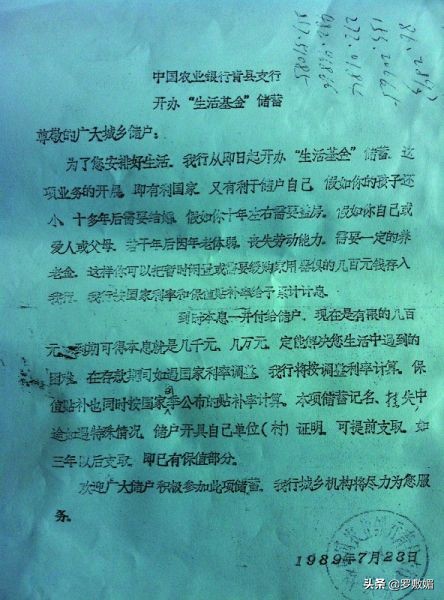 中国农业银行青县支行
开办“生活基金”储蓄
尊敬的广大城乡储户：
为了您安排好生活，我行从即日起开办“生活基金”储蓄。这
项业务的开展，即有利国家，又有利于储户自己，假如你的孩子还
小，十多年后需要结婚，假如你十年左右需要盖房，假如你自己或
爱人或父母，若干年后因年老体弱，丧失劳动能力，需要一定的养
老金，这样你可以把暂时闲置或需要缓购家用器俱的几百元钱存入
我行，我行按国家利率和保值贴补率给予累计计息。
到时本息一并付给储户，现在是有限的几百
元，到期可得本息就是几千元，几万元，定能解决您生活中遇到的
困难，在存款期间如遇国家利率调整，我行将按调整利率计算。保
值贴补也同时按国家季公布的贴补率计算。本项储蓄记名、挂失中
途如遇特殊情况，储户开具自己单位（村）证明，可提前支取，如
三年以后支取，即已有保值部分。
欢迎广大储户积极参加此项储蓄，我行城乡机构将尽力为您服
务。
1989年7月23日
头条 @罗敷媚